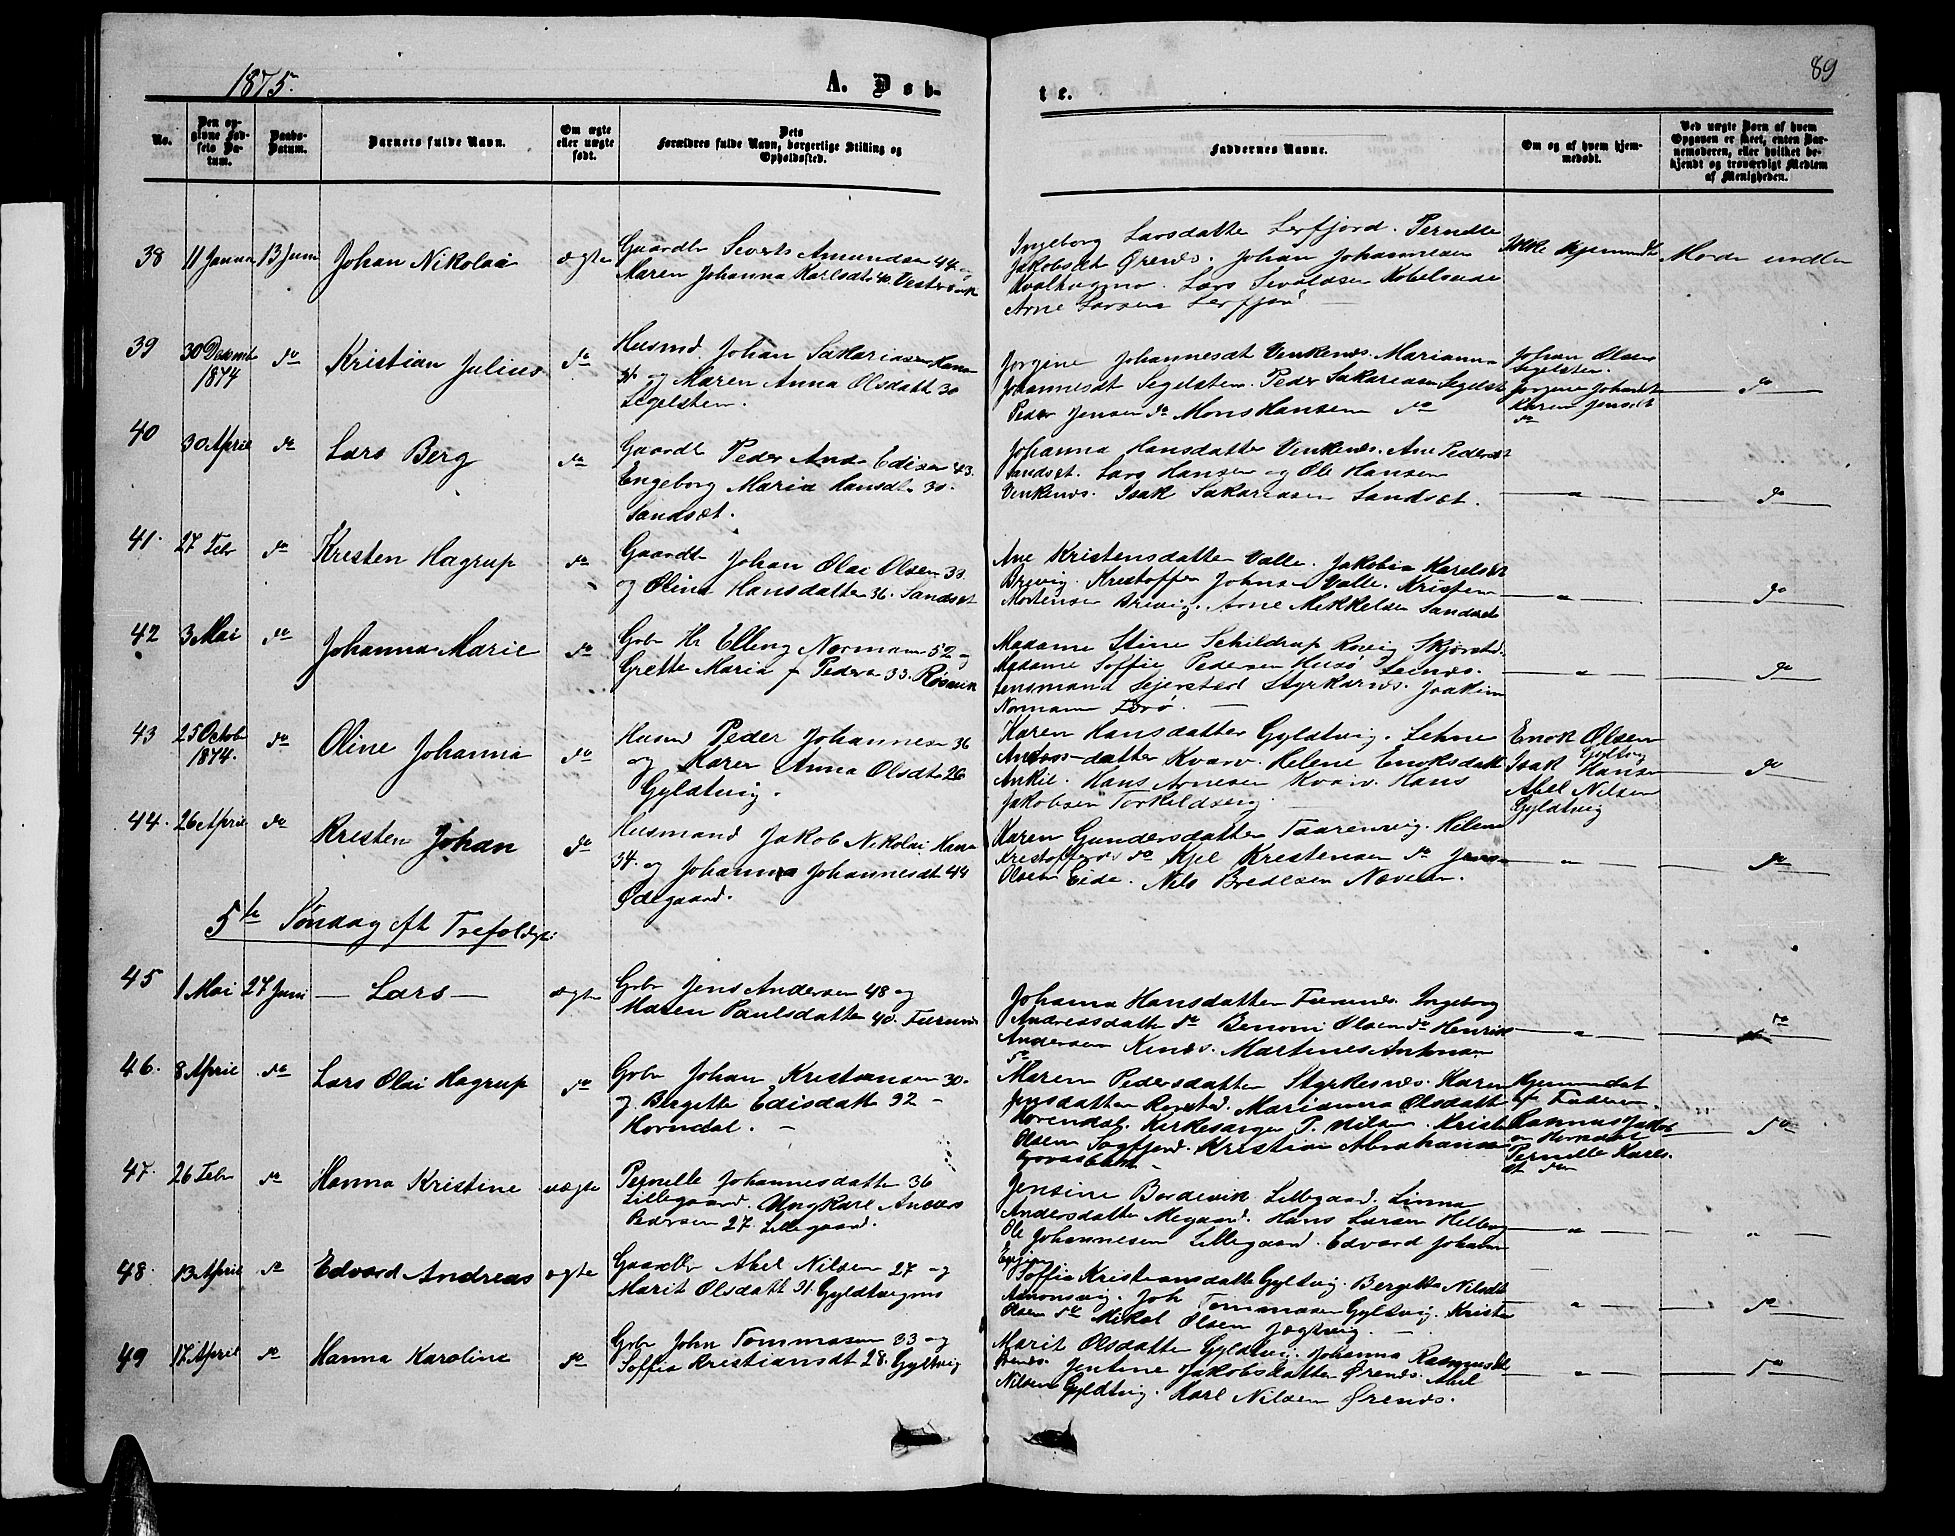 1875.
A. Døb-
te.
89
No.
Den op-
givne Fød-
sels Da-
tum.
Daabs-
Datum.
Barnets fulde Navn.
Om ægte
eller uægte
født.
Dets
Forældres fulde Navn, borgerlige Stilling og
Opholdssted.
Faddernes Navne.
Om og af hvem hjem-
medøbt.
Ved uægte Børn af hvem
Opgaven er skeet, enten Bar-
nemoderen, eller hvilket be-
kjendt og troværdigt Medlem
af Menigheden.
38 11 Januar 13 Juni Johan Nikolai ægte
Gaardbr Severts Amundsen 44 og
Maren Johanna Karlsdt 40
Ingeborg Larsdatter Lerfjord. Pernelle
Jakobsdt Ørenes. Johan Johannesen
Lars Sivaldsen
Arne Larsen Lerfjord
Ikke hjemmedt
39 30 Decemb
1874 do Kristian Julius do
Husmd Johan Sakariasen
31 og Maren Anna Olsdatt 30
Segelsten.
Jorgine Johannesdt Venkenes. Marianna
Johannesdt Segelsten. Peder Sakariasen Segelst
Peder Jensen do Mons Hansen do
Johan Olsen
Segelsten.
Jorgine Johansdt
Karen Jensdt
do
do
40 30 April do Lars Berg do
Gaardb Peder And. Edisen 43.
Engeborg Maria Hansdt 30.
Sandset.
Johanna Hansdatter Venkenes. Ane Pedersdt
Sandset. Lars Hansen og Ole Hansen
Venkenes. Isak Sakariasen Sandset.
" do
41. 27 Febr do Kresten Hagrup do
Gaardb Johan Olai Olsen 33
og Olina Hansdatter 36. Sandset
Ane Kristensdatter Valle. Jakobia Karelsdt
Brevig. Krestoffer Johnsen Valle. Kristen
Mortensen Brevig. Arne Mikkelsen Sandset
" do
42 3 Mai do Johanna Marie do
Gbr Hr Elling Normann 52 og
Grette Maria f Pedersen 33. Røsvik
Madame Stine Schildrup Røvig Skjørstad.
Madame Soffie Pedersen Husø Leines.
Lensmand Sejersted Styrkesnes. Joakim
Normann
" do
43 25 Octob
1874. do Oline Johanna do
Husmd Peder Johannesen 36
og Maren Anna Olsdt 26
Gyldtvig.
Karen Hansdatter Gyldtvig. Lehne
Andersdatter Kvarv. Helene Enoksdatt
Ankil. Hans Arnesen Kvarv. Hans
Jakobsen Torkildseig.
Enok Olsen
Gyltvig
Isak Hansen
Abel Nilsen
Gyldtvig
do
44. 26 April do Kresten Johan do
Husmand Jakob Nikolai Hans
34. og Johanna Johannesdt 44
Ødegaard.
Karen Gundersdatter Taarenvig. Helene
Krestoffers do Kjel Krestensen do Jens
Olsen Eide. Nils Bredesen
" do
5te Søndag eft Trefoldigh:
45 1 Mai 27 Juni – Lars – ægte
Gbr Jens Andersen 48 og
Maren Paulsdatter 40. Furunes
Johanna Hansdatter Furunes. Ingeborg
Andreasdatter do Benoni Olsen do Henrik
Andersen Kines. Martines Antonsen
do
" do
46. 8 April do Lars Olai Hagrup do
Gbr Johan Kristensen 30.
og Birgitte Edisdatt 32 –
Horndal. –
Maren Pedersdatter Styrkesnes. Karen
Jensdatter Marianna Olsdatt
Horendal. Kirkesanger P. Nilsen. Kristen
Olsen Sagfjord. Kristian Abrahamsen
Hjemmedøbt
af Faderen
Rasmus Jakob
Horndal
Pernille Karls-
dt do
do
47. 26 Febr do Hanna Kristine uægte
Pernille Johannesdatter 36
Lillegaard. Ungkarl Anders
Pedersen 27. Lillegaard.
Jensine Bordevik Lillegaard. Linna
Andersdatter Megaard. Hans Larsen Helberg
Ole Johannesen Lillegaard. Edvard Johansen
" "
48. 13 April do Edvard Andreas ægte
Gaardbr Abel Nilsen 27 og
Marit Olsdatt 31. Gyldtvigens
Soffia Kristiansdatte Gyltvig. Bergitta Nilsdt
Joh Tommasen Gyltvig. Kristen
Olsen do Mikal Olsen Jægtvig.
" do
49 17 April do Hanna Karoline do
Gbr John Tommasen 33 og
Soffia Kristiansdt 28. Gyltvig
Marit Olsdatter Gyldtvig. Johanna Rasmusdt
Ørenes. Jentine Jakobsdatter Ørenes. Abel
Nilsen Gyldtvig. Karl Nilsen Ørenes.
" do